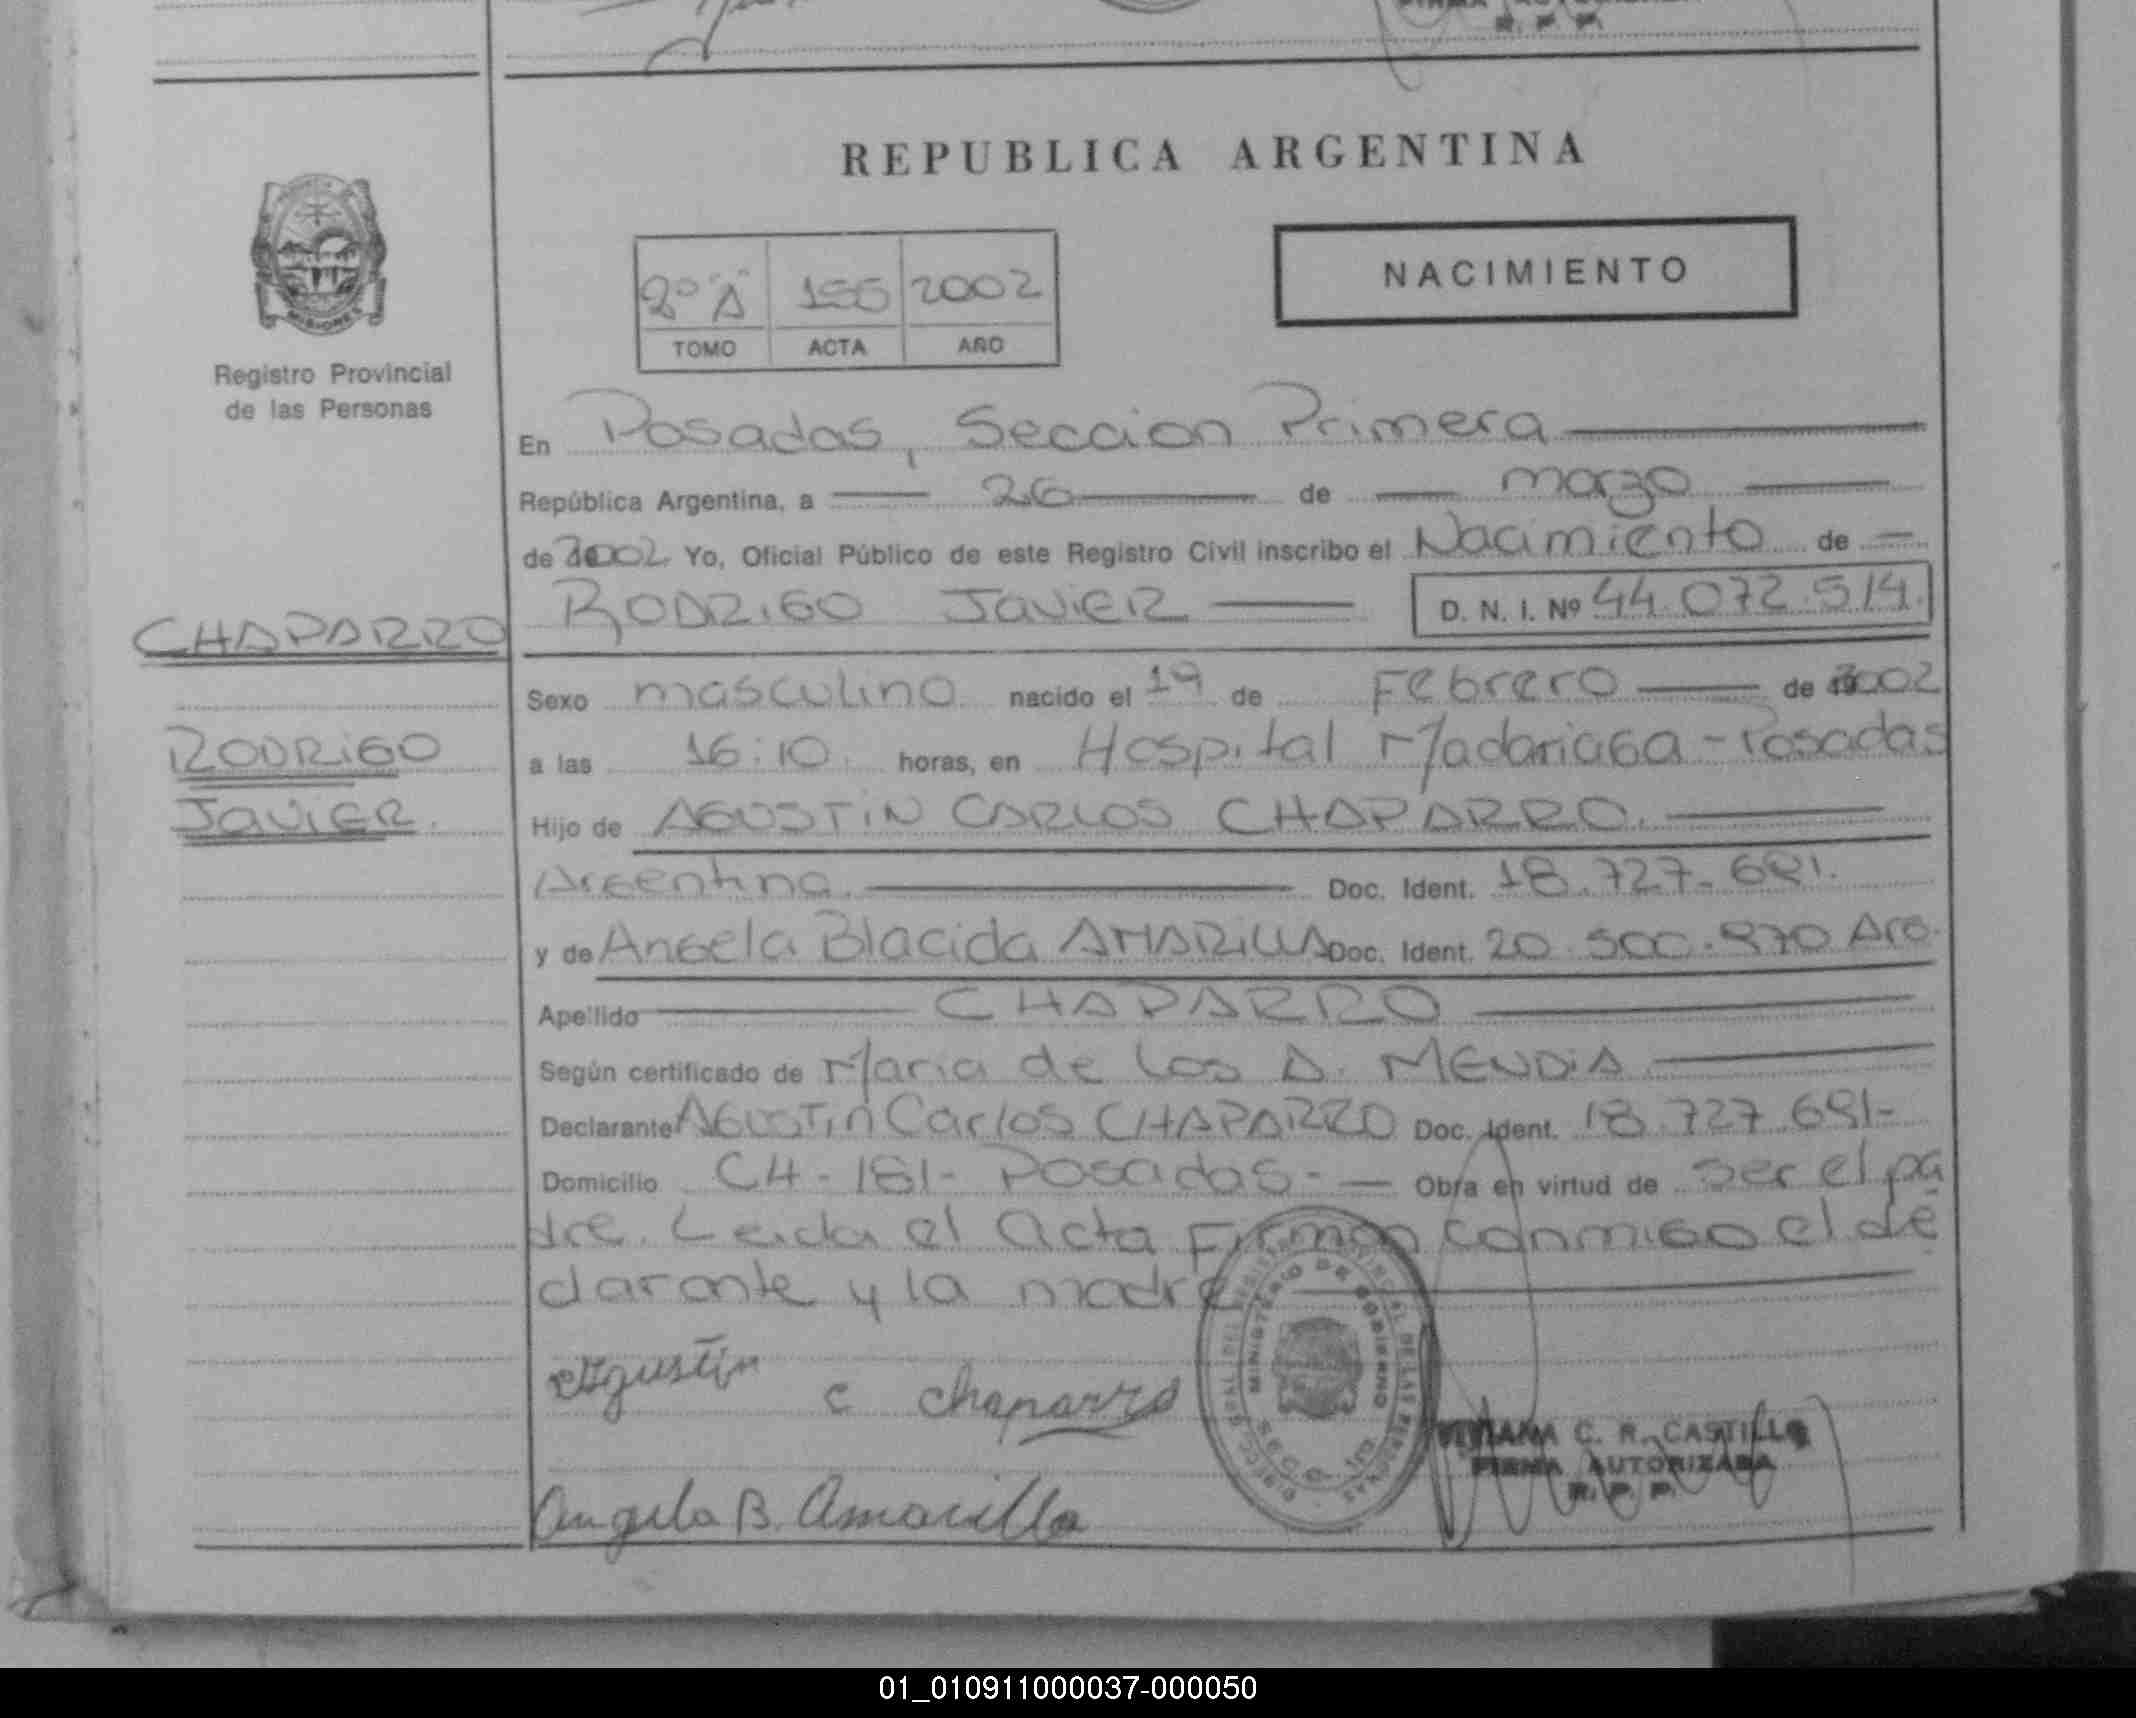 REPUBLICA ARGENTINA
NACIMIENTO
2º "A" 2002
TOMO ACTA AÑO
Registro Provincial
de las Personas
MISIONES
En Posadas, Seccion Primera
República Argentina, a 26 de marzo
de 2002 Yo, Oficial Público de este Registro Civil inscribo el Nacimiento de
CHAPARRO
RODRIGO JaviER D. N. I. Nº 44.072.514.
Sexo masculino nacido el 19 de Febrero de 2002
RODRIGO
a las 16:10. horas, en Hospital Madariaga - Posadas
JaviER.
Hijo de AGUSTiN CARLOS CHAPARRO.
Argentina. Doc. Ident. 18.727.691.
y de Angela Blacida AMARiLLA Doc. Ident. 20.500.970 Arg.
Apellido CHAPARRO
Según certificado de Maria de los A. MENDiA
Declarante AGUSTin Carlos CHAPARRO Doc. Ident. 18.727.691-
Domicilio CH - 181 - Posadas - Obra en virtud de ser el pa
dre. Leida el acta Firman conmigo el de
clarante y la madre
Agustin C Chaparro
MINISTERIO DE GOBIERNO
VIVIANA C. R. CASTILLO
FIRMA AUTORIZADA
R. P. P.
Angela B. Amarilla
01_010911000037-000050